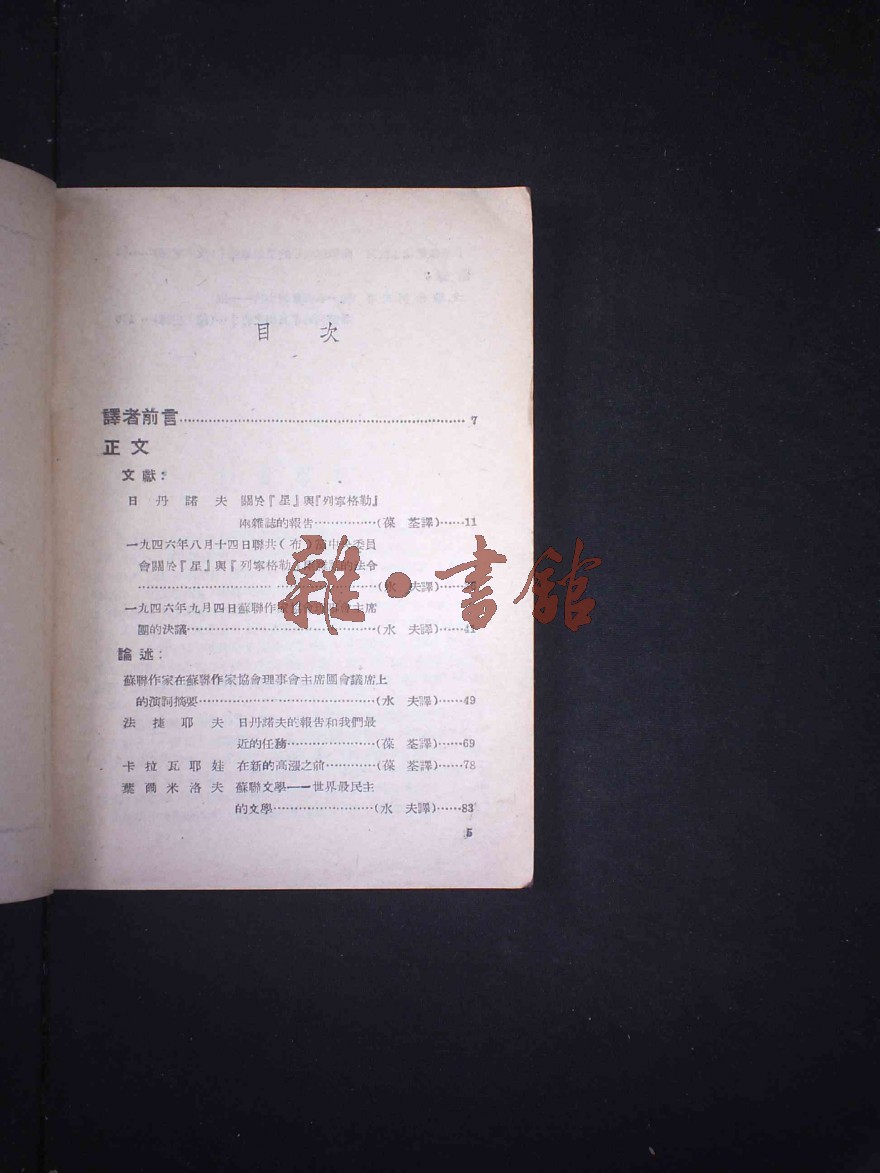 目 次
譯者前言 7
正文
文獻：
日丹諾夫 關於『星』與『列寧格勒』
兩雜誌的報告……………(葆荃譯)……11
一九四六年八月十四日聯共(布)中委員
會關於『星』與『列寧格勒 法令
(水夫譯)
一九四六年九月四日蘇聯作家 主席
團的決議……(水夫譯)……41
論述：
蘇聯作家在蘇聯作家協會理事會主席團會議席上
的演詞摘要……(水夫譯)……49
法捷耶夫 日丹諾夫的報告和我們最
近的任務……(葆荃譯)……69
卡拉瓦耶娃 在新的高漲之前……(葆荃譯)……78
葉爾米洛夫 蘇聯文學——世界最民主
的文學……(水夫譯)……83
5
雜·書館